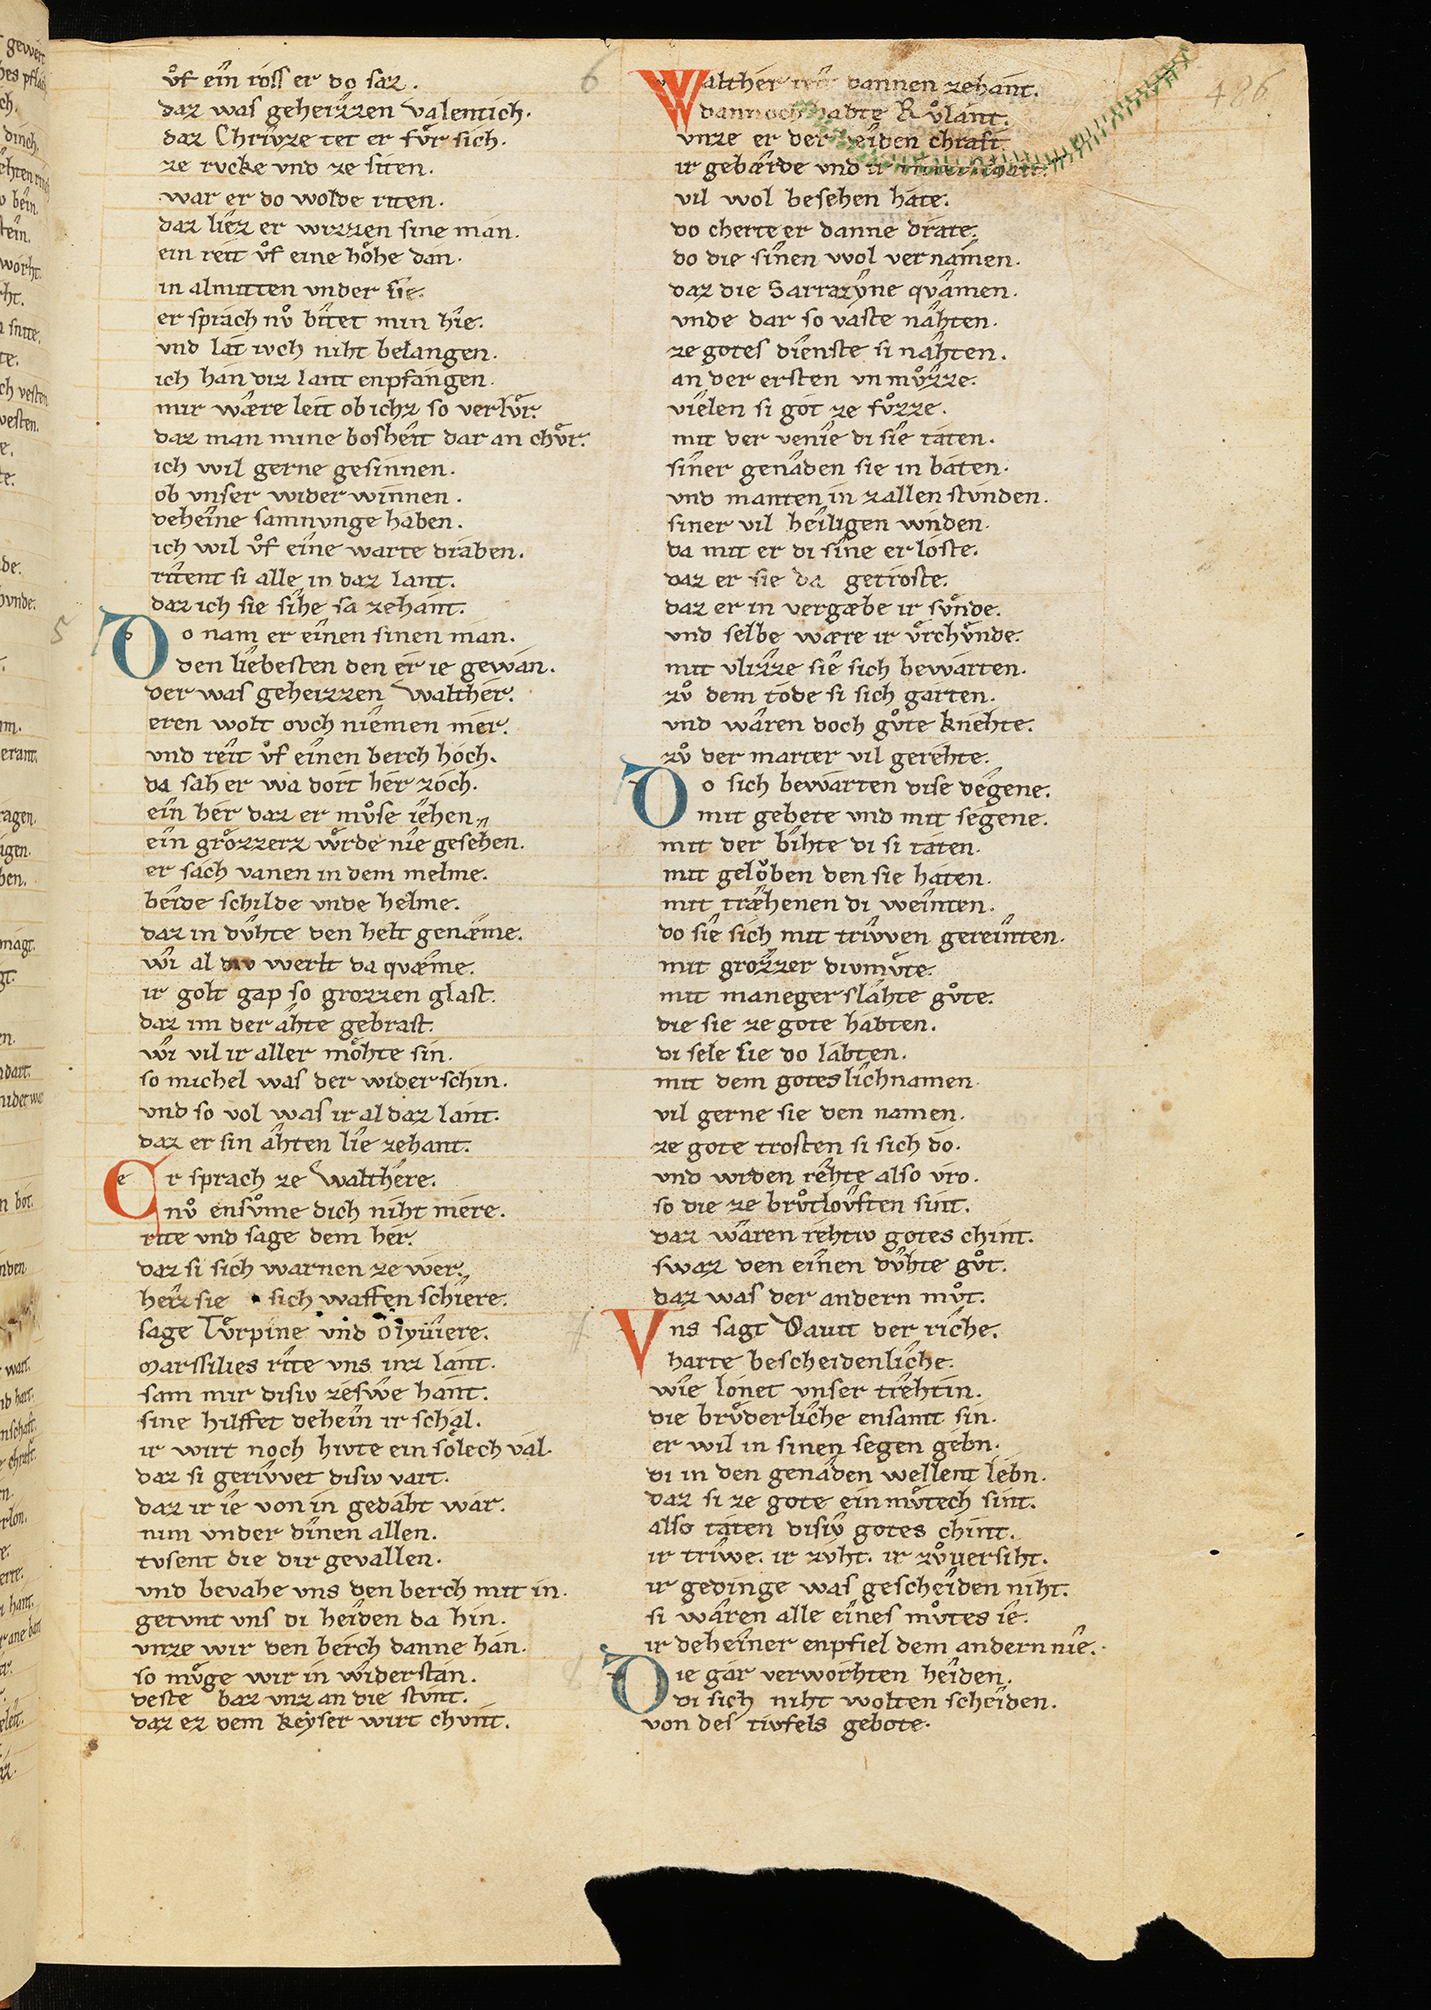 vͦf ein ross er do saz.
daz was geheizzen valentich.
daz Chriv̂ze tet er fv̊r sich.
ze rvcke vnd ze siten.
war er do wolde riten.
daz liez er wizzen sine man.
ein reit vͦf eine hôhe dan.
in almitten vnder sie.
er sprach nvͦ bîtet min hîe.
vnd lat ivch niht belangen.
ich han diz lant enpfangen.
mir wære leit ob ichz so verlv̊r.
daz man mine bosheit dar an chv̊r.
ich wil gerne gesinnen.
ob vnser wider winnen.
deheine samnvnge haben.
ich wil vͦf eine warte draben.
rîtent si alle in daz lant.
daz ich sie sihe sa zehant.
Do nam er einen sinen man.
den lîebesten den er ie gewan.
der was geheizzen walther.
eren wolt ovch nîemen mer.
vnd reit vͦf einen berch hoch.
da sah er wa dort her zoch.
ein her daz er mvͦse iehen
ein grôzzerz wͦrde nîe gesehen.
er sach vanen in dem melme.
beide schilde vnde helme.
daz in dv̂hte den helt genæme.
wî al div werlt da qvæme.
ir golt gap so grozzen glast.
daz im der ahte gebrast.
wi vil ir aller môhte sin.
so michel was der wider schin.
vnd so vol was ir al daz lant.
daz er sin âhten lîe zehant.
Er sprach ze walthere.
nvͦ ensvͦme dich niht mere.
rite vnd sage dem her.
daz si sich warnen ze wer.
heiz sie sich waffen schîere.
sage Tvͦrpine vnd Olyuîere.
Marssilies rîte vns inz lant.
sam mir disiv zeswe hant.
sine hilffet dehein ir schal.
ir wirt noch hivte ein sôlech val.
daz si gerivvet disiv vart.
daz ir ie von in gedaht war.
nim vnder dînen allen.
tvsent die dir gevallen.
vnd bevahe vns den berch mit in.
getvnt vns di heiden da hin.
vnze wir den berch danne han.
so mvͦge wir in widerstan.
veste baz vnz an die stvnt.
daz ez dem keyser wirt chvnt.
Walther dannen zehant.
dannoch habte Rvͦlant.
vnze er der heiden chraft.
ir gebærde vnd ir
vil wol besehen hate.
do cherte er danne drate.
do die sînen wol vernamen.
daz die Sarrazyne qvâmen.
vnde dar so vaste nâhten.
ze gotes dîenste si nâhten.
an der ersten vn mvͦzze.
vîelen si got ze fvͦzze.
mit der venîe di sîe taten.
sîner genâden sie in bâten.
vnd manten in zallen stvnden.
siner vil heiligen wnden.
da mit er di sîne erloste.
daz er sie da getroste.
daz er in vergæbe ir svͦnde.
vnd selbe wære ir vͦrchvͦnde.
mit vlizze sîe sich bewarten.
zvͦ dem tode si sich garten.
vnd wâren doch gvͦte knehte.
zvͦ der marter vil gerehte.
Do sich bewarten dise degene.
mit gebete vnd mit segene.
mit der bîhte di si taten.
mit gelôben den sie haten.
mit træhenen di weinten.
do sîe sich mit trivven gereinten.
mit grozzer divmvͦte.
mit maneger slahte gvͦte.
die sie ze gote habten.
di sele sie do labten.
mit dem gotes lichnamen.
vil gerne sie den namen.
ze gote trosten si sich do.
vnd wrden rehte also vro.
so die ze brvͦtlovften sint.
daz wâren rehtiv gotes chint.
swaz den einen dv̂hte gvͦt.
daz was der andern mvͦt.
Vns sagt Dauit der riche.
harte bescheidenlîche.
wie lonet vnser trehtin.
die brvͦderliche ensamt sin.
er wil in sinen segen gebn.
di in den genâden wellent lebn.
daz si ze gote ein mvͦtech sint.
also taten disiv gotes chint.
ir triwe. ir zvht. ir zvͦuersiht.
ir gedinge was gescheiden niht.
si wâren alle eines mvͦtes ie.
ir deheiner enpfiel dem andern nie.
Die gar verworhten heiden.
di sich niht wolten scheiden.
von des tivfels gebote.